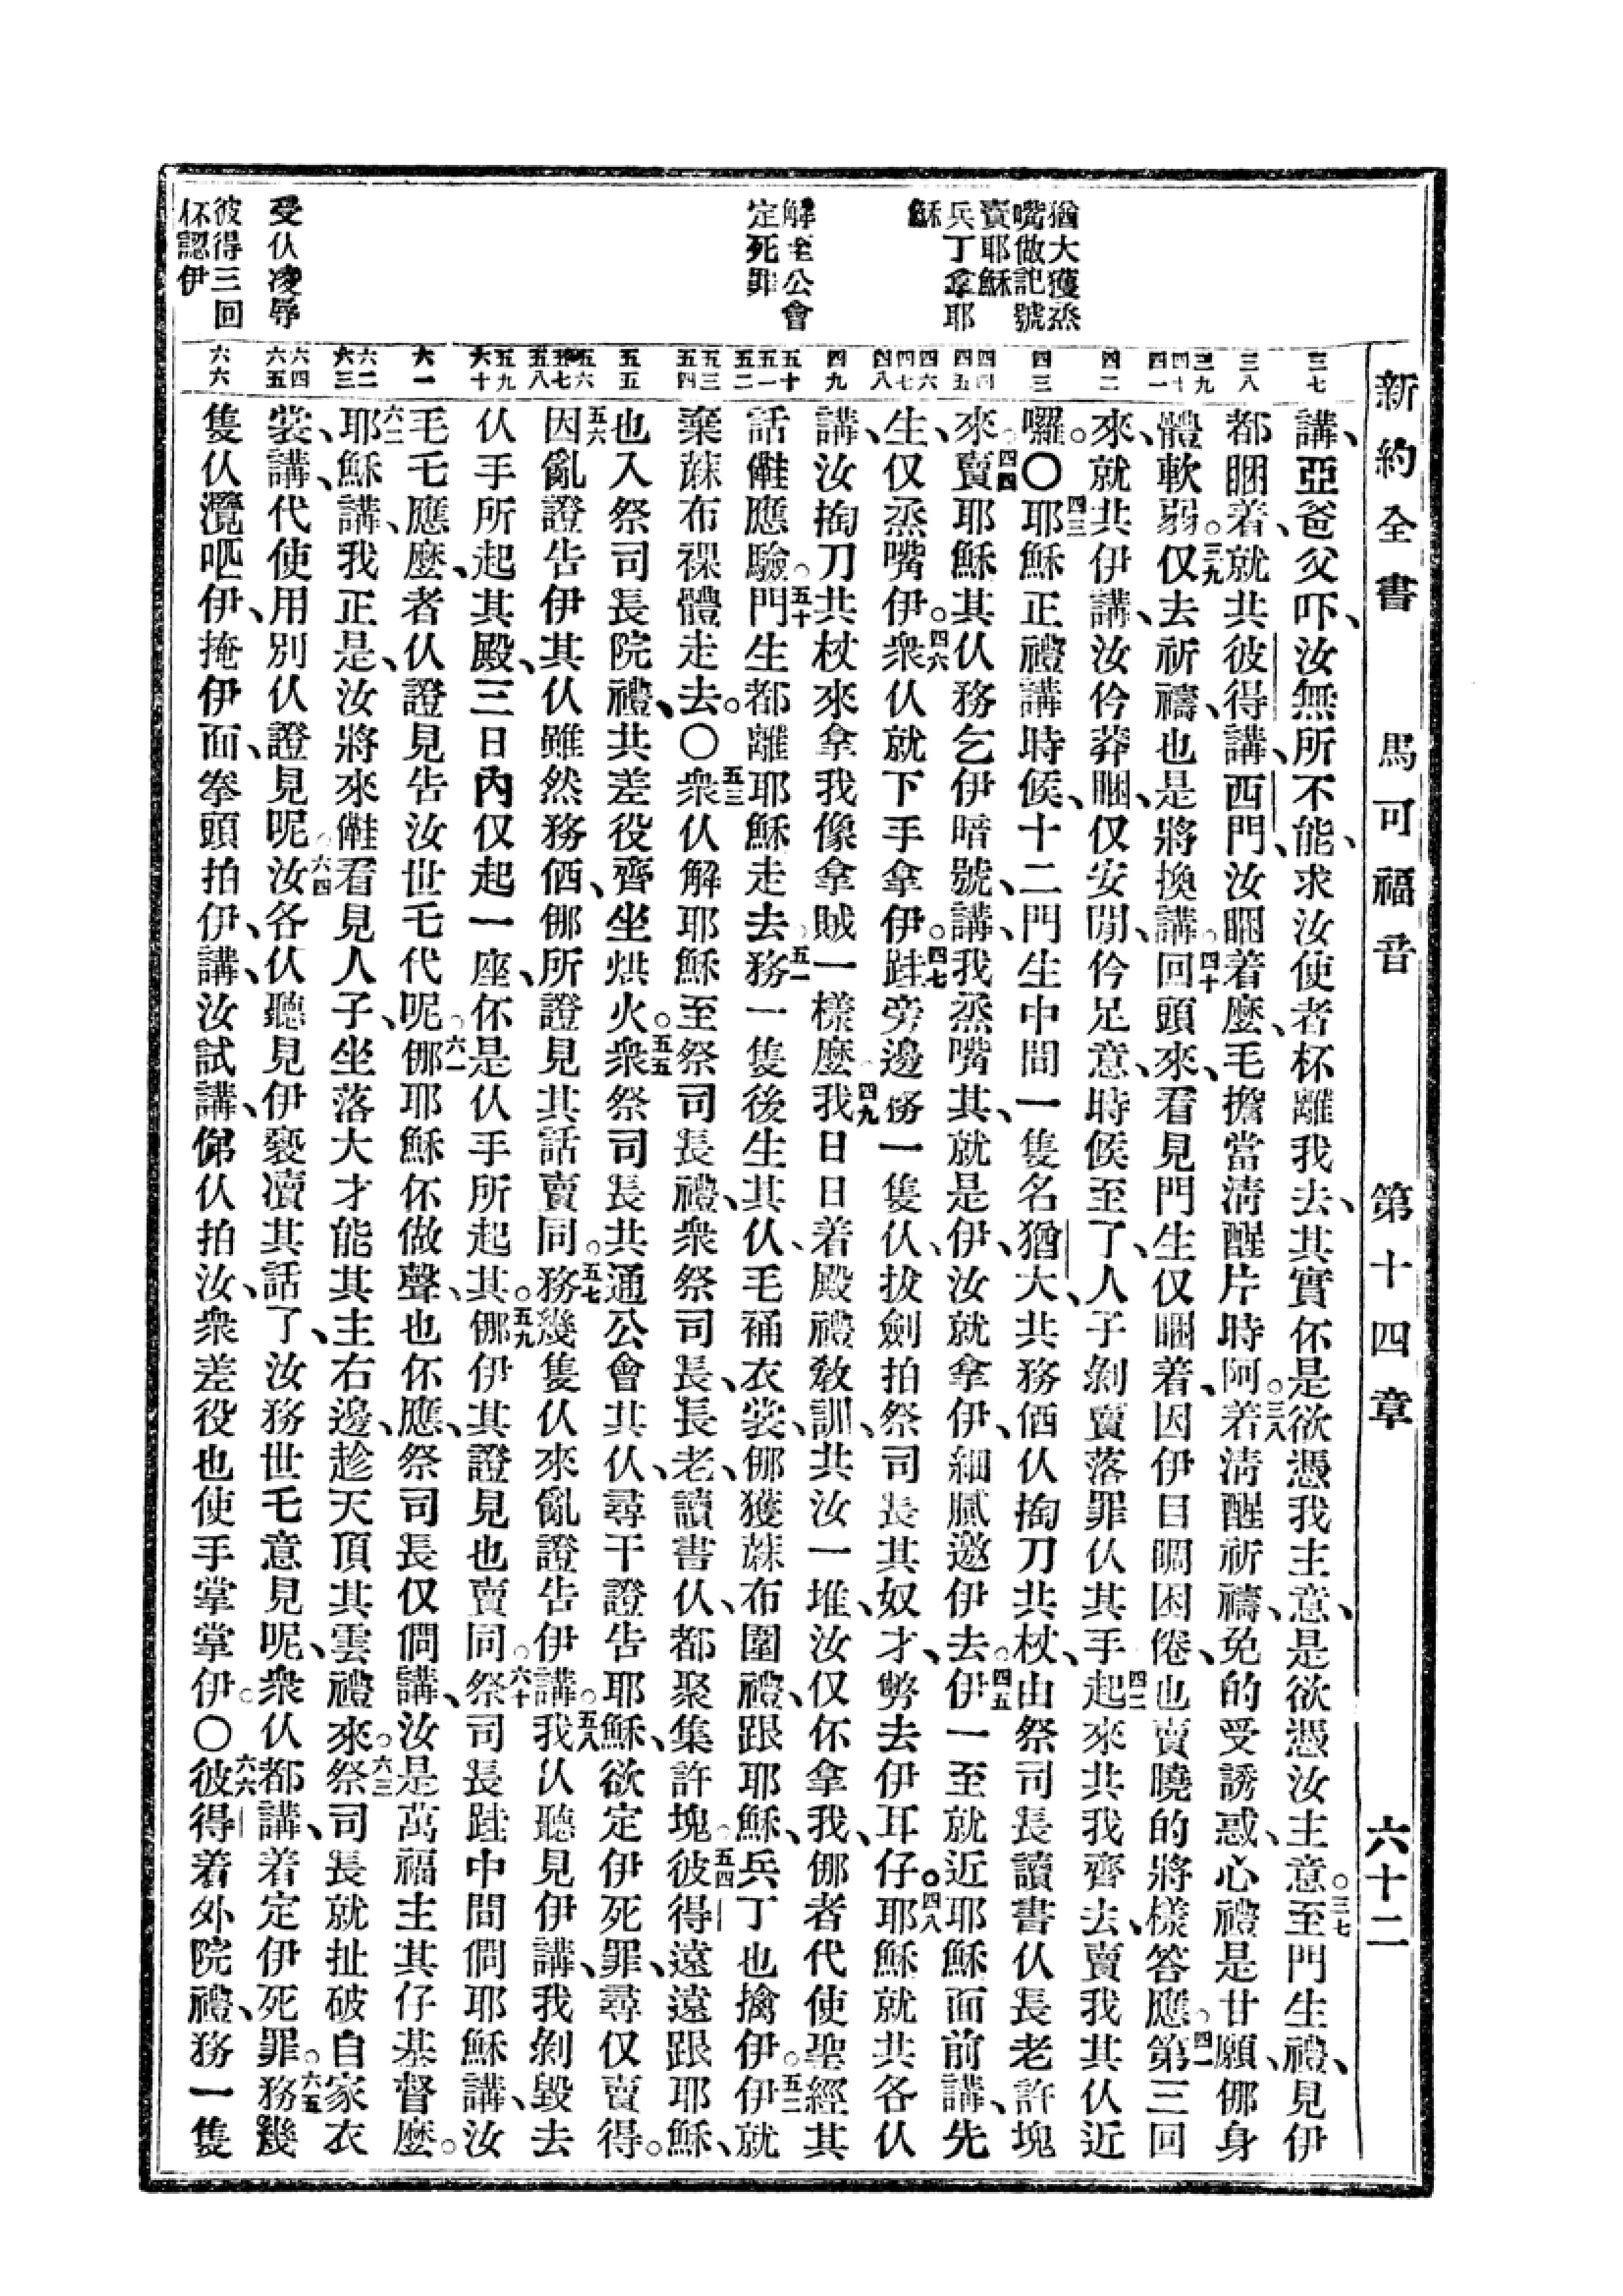 新約全書 馬可福音 第十四章 六十二
猶大獲烝
嘴做記號
賣耶穌
兵丁拿耶
穌
解至公會
定死罪
受仫凌辱
彼得三回
伓認伊
三七
三八
三九 四十 四一
四二
四三
四四 四五
四六 四七 四八
四九
五十 五一 五二
五三 五四
五五
五六 五七 五八
五九 六十
六一
六二 六三
六四 六五
六六
講、亞爸父吓、汝無所不能、求汝使者杯離我去、其實伓是欲憑我主意、是欲憑汝主意。三七至門生禮、見伊
都睏着、就共彼得講、西門、汝睏着麼、毛擔當清醒片時阿。三八着清醒祈禱、免的受誘惑、心禮是甘願、㑚身
體軟弱。三九仅去祈禱、也是將換講。四十回頭來、看見門生仅睏着、因伊目睭困倦、也賣曉的將樣答應。四一第三回
來、就共伊講、汝仱莽睏、仅安閒、仱足意、時候至了、人子剝賣落罪仫其手、四二起來共我齊去、賣我其仫近
囉。〇四三耶穌正禮講時候、十二門生中間、一隻名猶大、共務価仫掏刀共杖、由祭司長讀書仫長老許塊
來。四四賣耶穌其仫務乞伊暗號、講、我烝嘴其、就是伊、汝就拿伊、細膩邀伊去。四五伊一至就近耶穌面前講、先
生、仅烝嘴伊。四六衆仫就下手拿伊。四七跬旁邊務一隻仫、拔劍拍祭司長其奴才、剺去伊耳仔。四八耶穌就共各仫
講、汝掏刀共杖來拿我、像拿賊一樣麼。四九我日日着殿禮教訓、共汝一堆、汝仅伓拿我、㑚者代使聖經其
話雝應驗。五十門生都離耶穌走去。五一務一隻後生其仫、毛褈衣裳、㑚獲蔴布圍禮、跟耶穌、兵丁也擒伊。五二伊就
棄蔴布裸體走去。〇五三衆仫解耶穌至祭司長禮、衆祭司長、長老、讀書仫、都聚集許塊。五四彼得遠遠跟耶穌、
也入祭司長院禮、共差役齊坐烘火。五五衆祭司長共通公會其仫、尋干證告耶穌、欲定伊死罪、尋仅賣得。
五六因亂證告伊其仫雖然務価、㑚所證見其話賣同。五七務幾隻仫來亂證告伊講。五八我仫聽見伊講、我剝毀去
仫手所起其殿、三日內仅起一座、伓是仫手所起其。五九㑚伊其證見也賣同。六十祭司長跬中間問耶穌講、汝
毛乇應麼、者仫證見告汝世乇代呢。六一㑚耶穌伓做聲、也伓應、祭司長仅問講、汝是萬福主其仔基督麼。
六二耶穌講、我正是、汝將來雝看見人子、坐落大才能其主右邊、趁天頂其雲禮來。六三祭司長就扯破自家衣
裳、講、代使用別仫證見呢。六四汝各仫聽見伊褻瀆其話了、汝務世乇意見呢、衆仫都講、着定伊死罪。六五務幾
隻仫灠吧伊、掩伊面、拳頭拍伊、講、汝試講、㑚仫拍汝、衆差役也使手掌掌伊。〇六六彼得着外院禮、務一隻